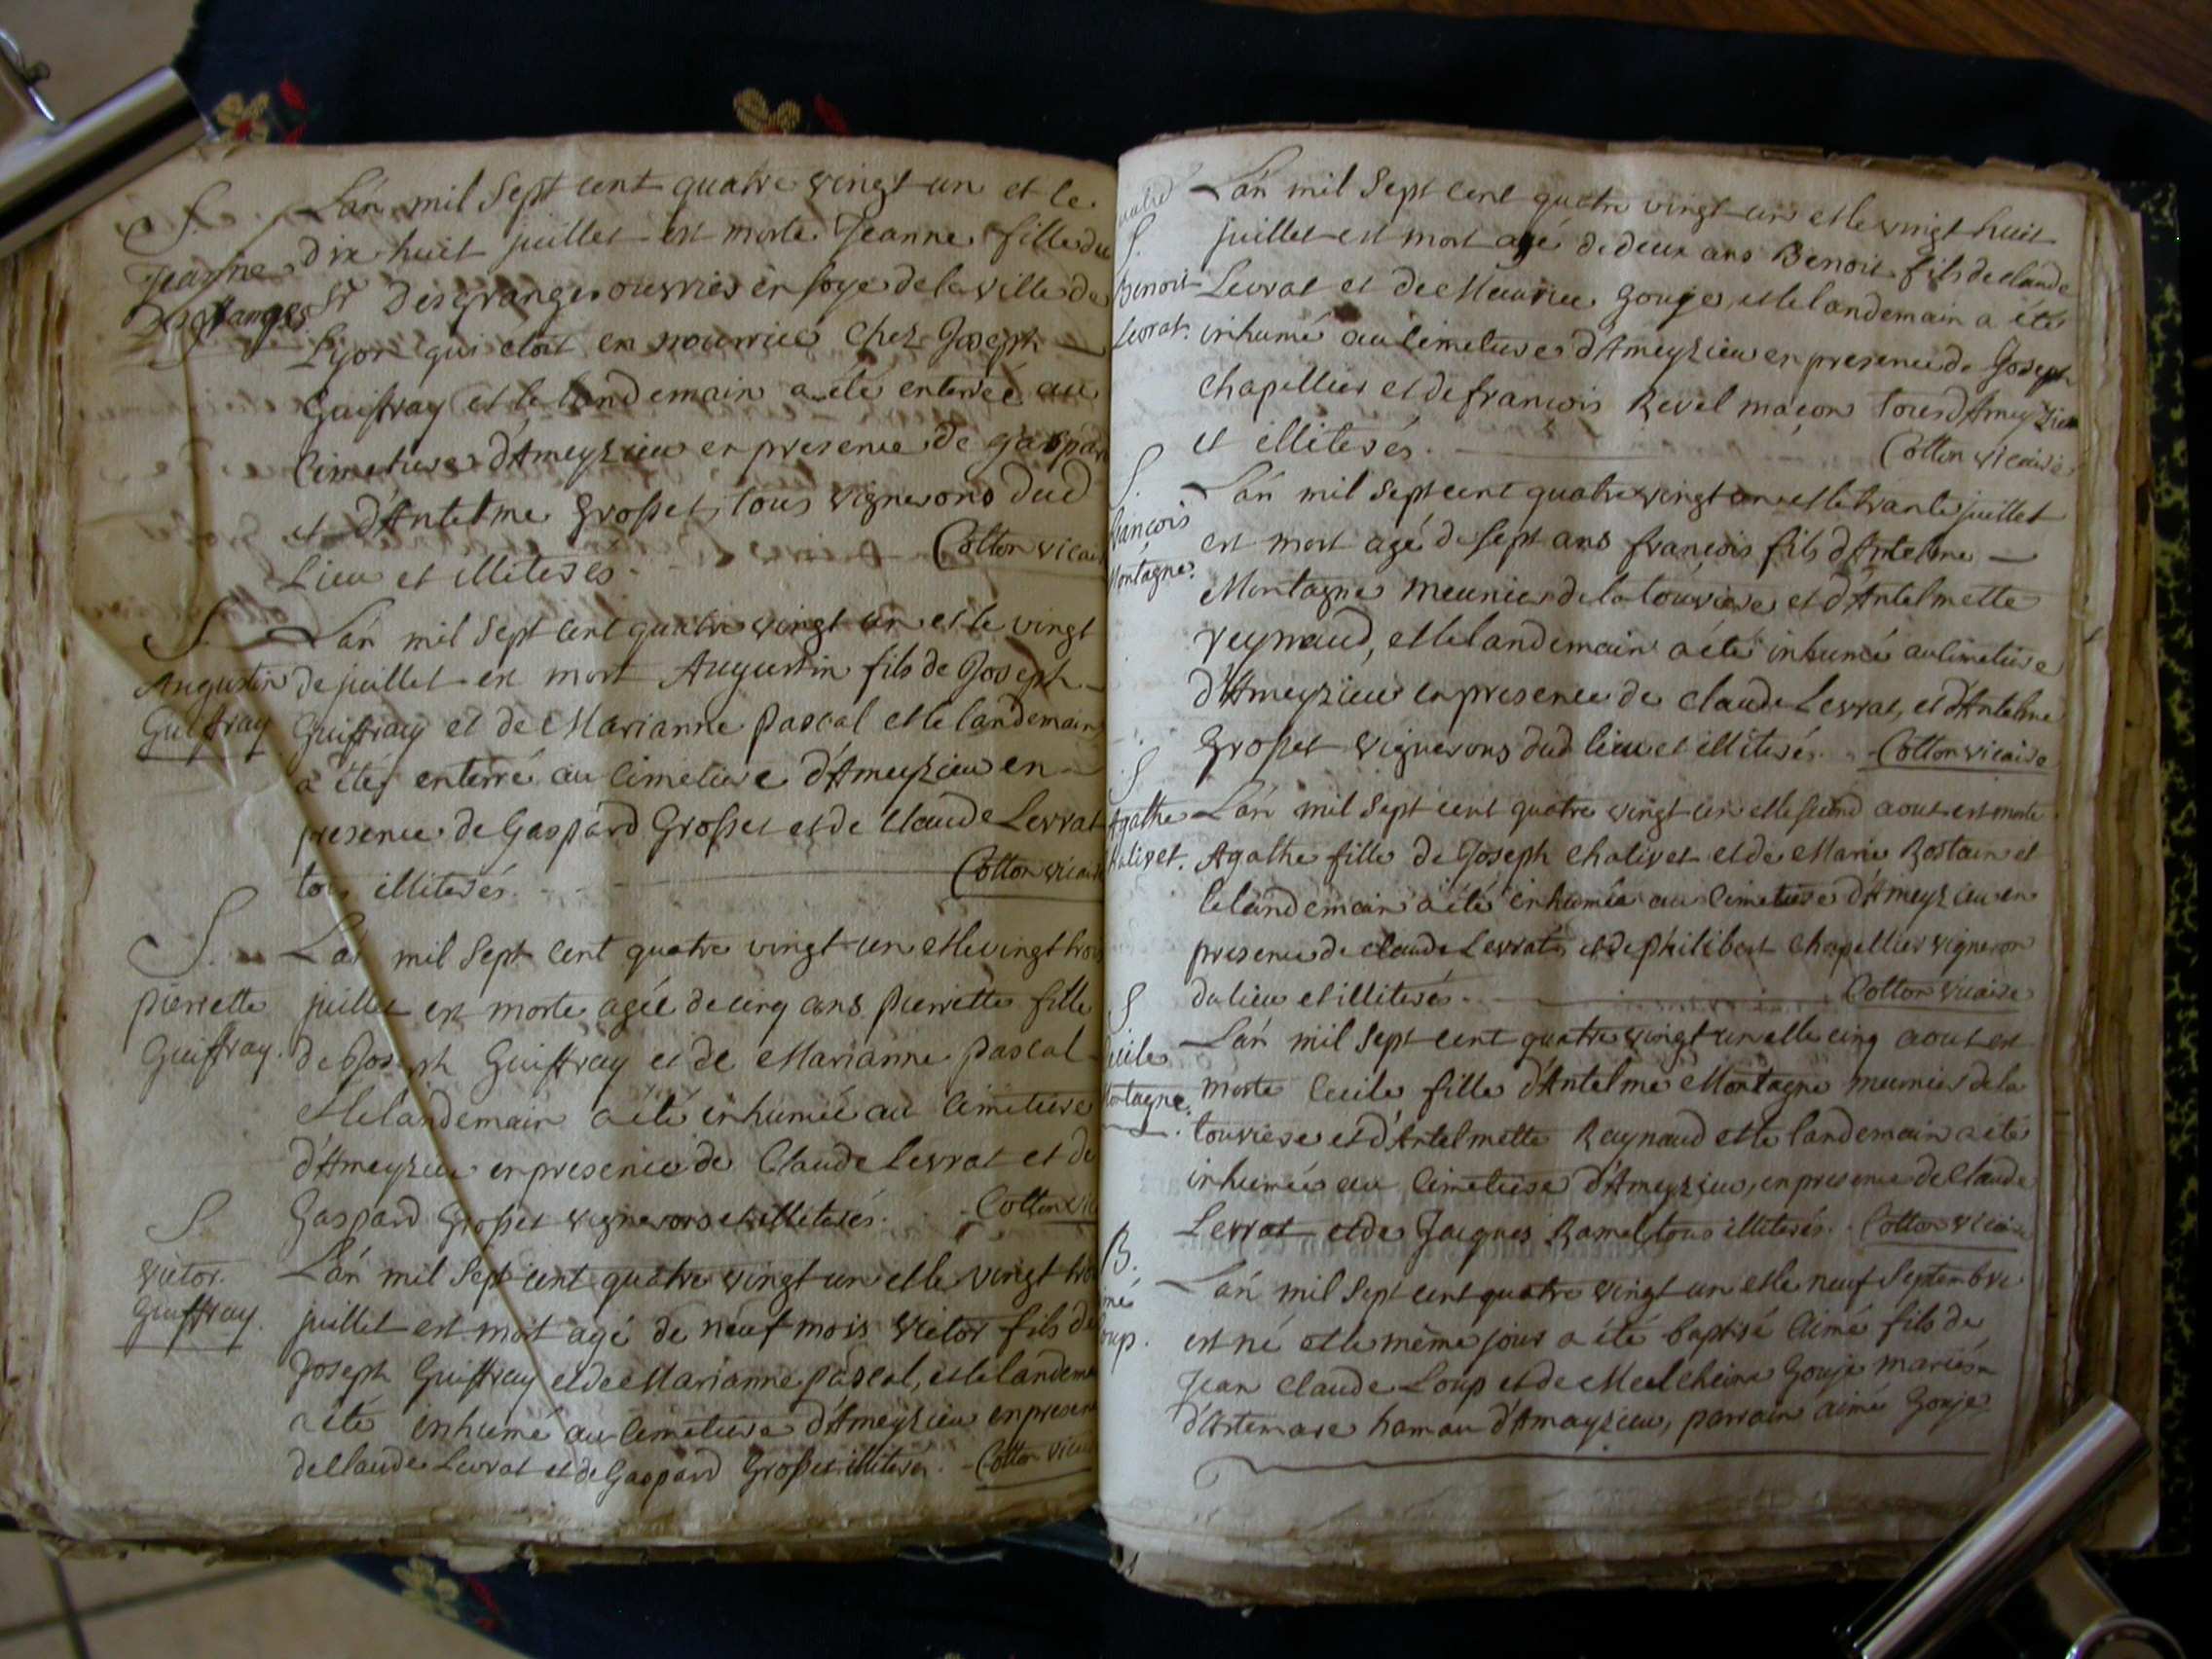 S.
Jeanne
Desgranges
L'an mil Sept cent quatre vingt un et le
dix huit juillet est morte Jeanne fille du
Sr Desgranges ouvrier en soye de la ville de
Lyon qui etoit en nourrice chez Joseph
Guiffray et le landemain a été enterrée au
Cimetiere d'Ameyzieu en presence de gaspar
et d'Antelme Grosset, tous vignerons dud
Lieu et illiterés. Cotton vicai
S.
Augustin
Guiffray
L'an mil Sept cent quatre vingt un et le vingt
de juillet est mort Augustin fils de Joseph
Guiffray et de Marianne Pascal et le landemain
a été enterré au Cimetiere d'Ameyzieu en
presence de Gaspard Grosset et de Claude Levrat
tous illiterés. Cotton vicaire
S.
Pierrette
Guiffray.
L'an mil Sept cent quatre vingt un et le vingt trois
juillet est morte agée de cinq ans Pierrette fille
de Joseph Guiffray et de Marianne Pascal
et le landemain a été inhumée au Cimetiere
d'Ameyzieu en presence de Claude Levrat et de
Gaspard Grosset vignerons et illiterés. Cotton vic
S.
Victor
Guiffray.
L'an mil Sept cent quatre vingt un et le vingt tro
juillet est mort agé de neuf mois Victor fils de
Joseph Guiffray et de Marianne Pascal, et le landem
a été inhumé au Cimetiere d'Ameyzieu en presen
de Claude Levrat et de Gaspard Grosset illiterés. Cotton vicai
S.
Benoit
Levrat.
L'an mil Sept cent quatre vingt un et le vingt huit
juillet est mort agé de deux ans Benoit fils de Claude
Levrat et de Meurice Gouje, et le landemain a été
inhumé au Cimetiere d'Ameyzieu en presence de Joseph
Chapellier et de françois Revel maçon tous d'Ameyzieu
et illiterés. Cotton vicaire
S.
françois
Montagne.
L'an mil Sept cent quatre vingt un et le trante juillet
est mort agé de Sept ans françois fils d'Antelme
Montagne meunier de la touviere et d'Antelmette
Reynaud, et le landemain a été inhumé au Cimetiere
d'Ameyzieu en presence de Claude Levrat, et d'Antelme
Grosset vignerons dud lieu et illiterés. Cotton vicaire
S
Agathe
halivet.
L'an mil Sept cent quatre vingt un et le second aout est morte
Agathe fille de Joseph Chalivet et de Marie Rostain et
le landemain a été inhumée au Cimetiere d'Ameyzieu en
presence de Claude Levrat, et de philibert Chapellier vigneron
du lieu et illiterés. Cotton vicaire
S
Cecile
Montagne.
L'an mil Sept cent quatre vingt un et le cinq aout est
morte Cecile fille d'Antelme Montagne meunier de la
touviere et d'Antelmette Raynaud et le landemain a été
inhumée au Cimetiere d'Ameyzieu, en presence de Claude
Levrat et de Jacques Ramel tous illiterés. Cotton vicaire
B.
mé
oup.
L'an mil Sept cent quatre vingt un et le neuf Septembre
est né et le même jour a été baptisé Aimé fils de
Jean Claude Loup et de Melcheine Gouje mariés
d'Artemare hamau d'Amayzieu, parrain aimé Gouje